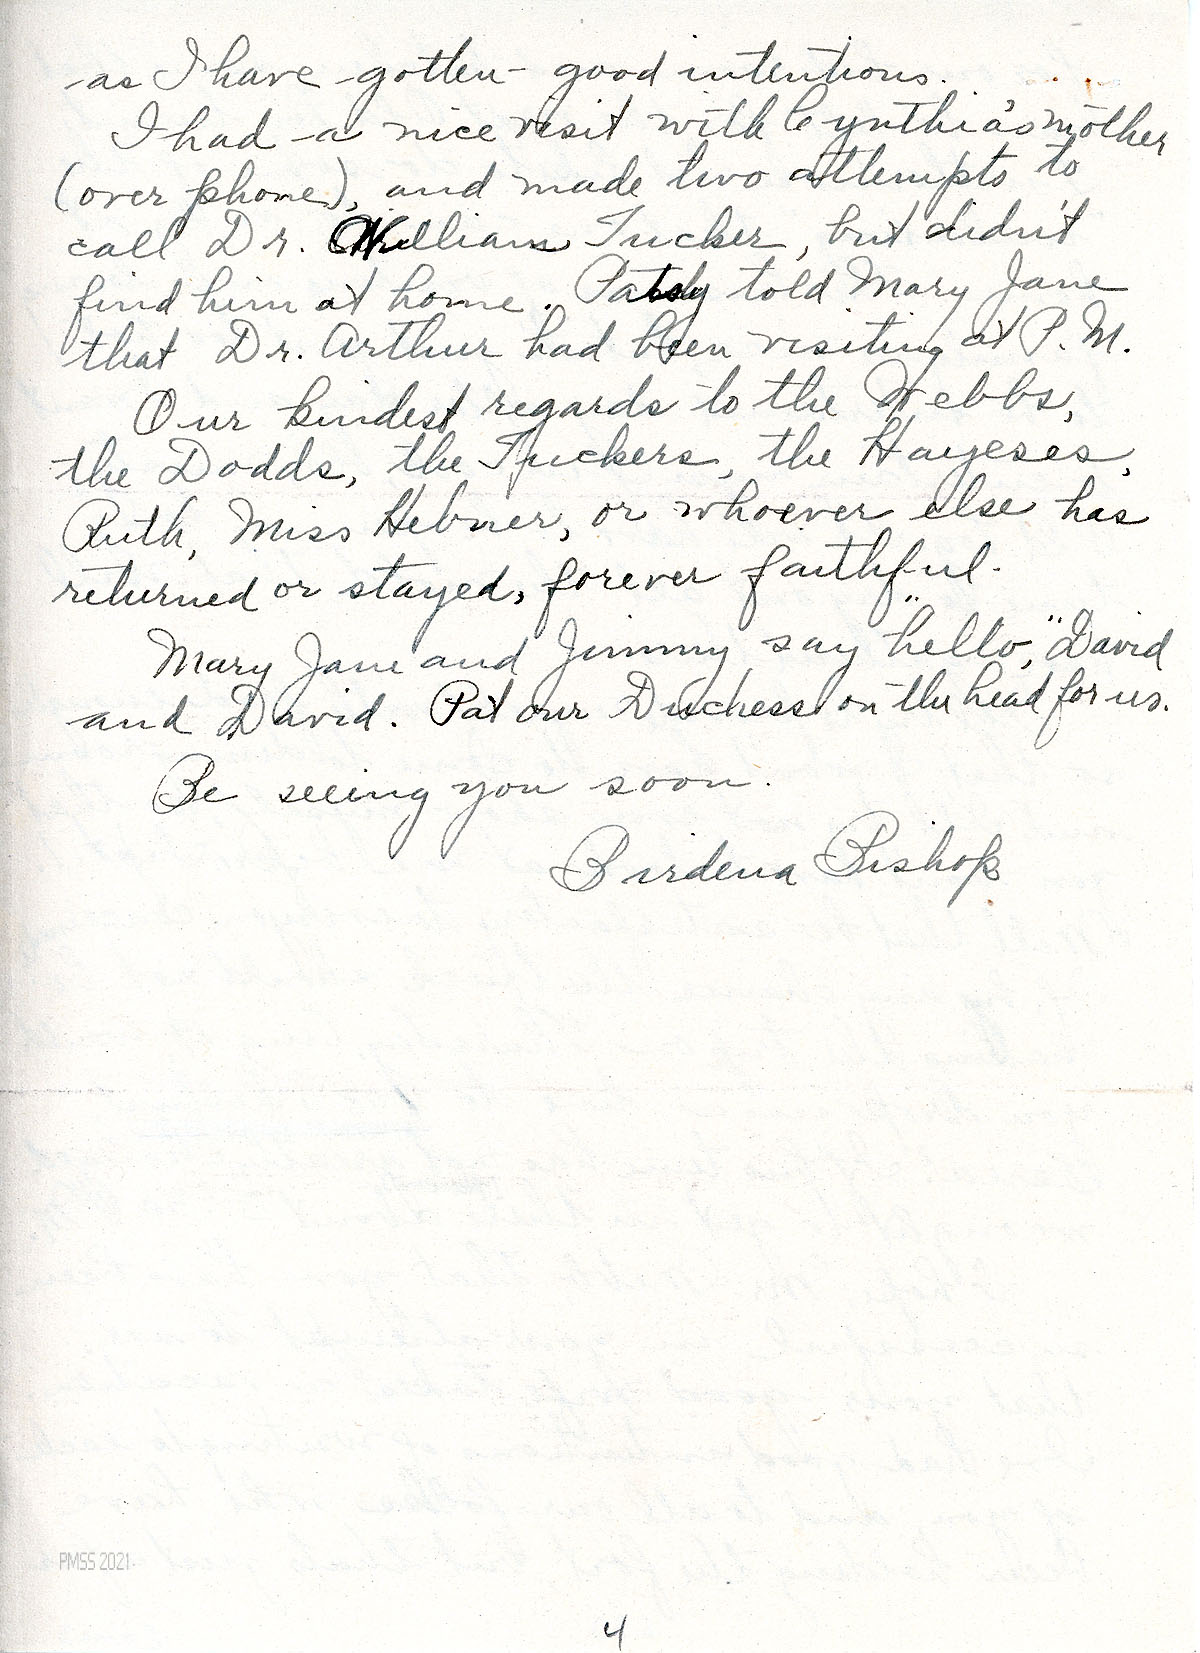 as I have gotten good intentions.
I had a nice visit with Cynthia's mother
(over phone), and made two attempts to
call Dr. William Tucker, but didn't
find him at home. Patsy told Mary Jane
that Dr. Arthur had been visiting at P. M.
Our kindest regards to the Webbs,
the Dodds, the Tuckers, the Hayeses,
Ruth, Miss Hebner, or whoever else has
returned or stayed, forever faithful.
Mary Jane and Jimmy say "hello," David
and David. Pat our Duchess on the head for us.
Be seeing you soon.
Birdena Bishop
PMSS 2021
4